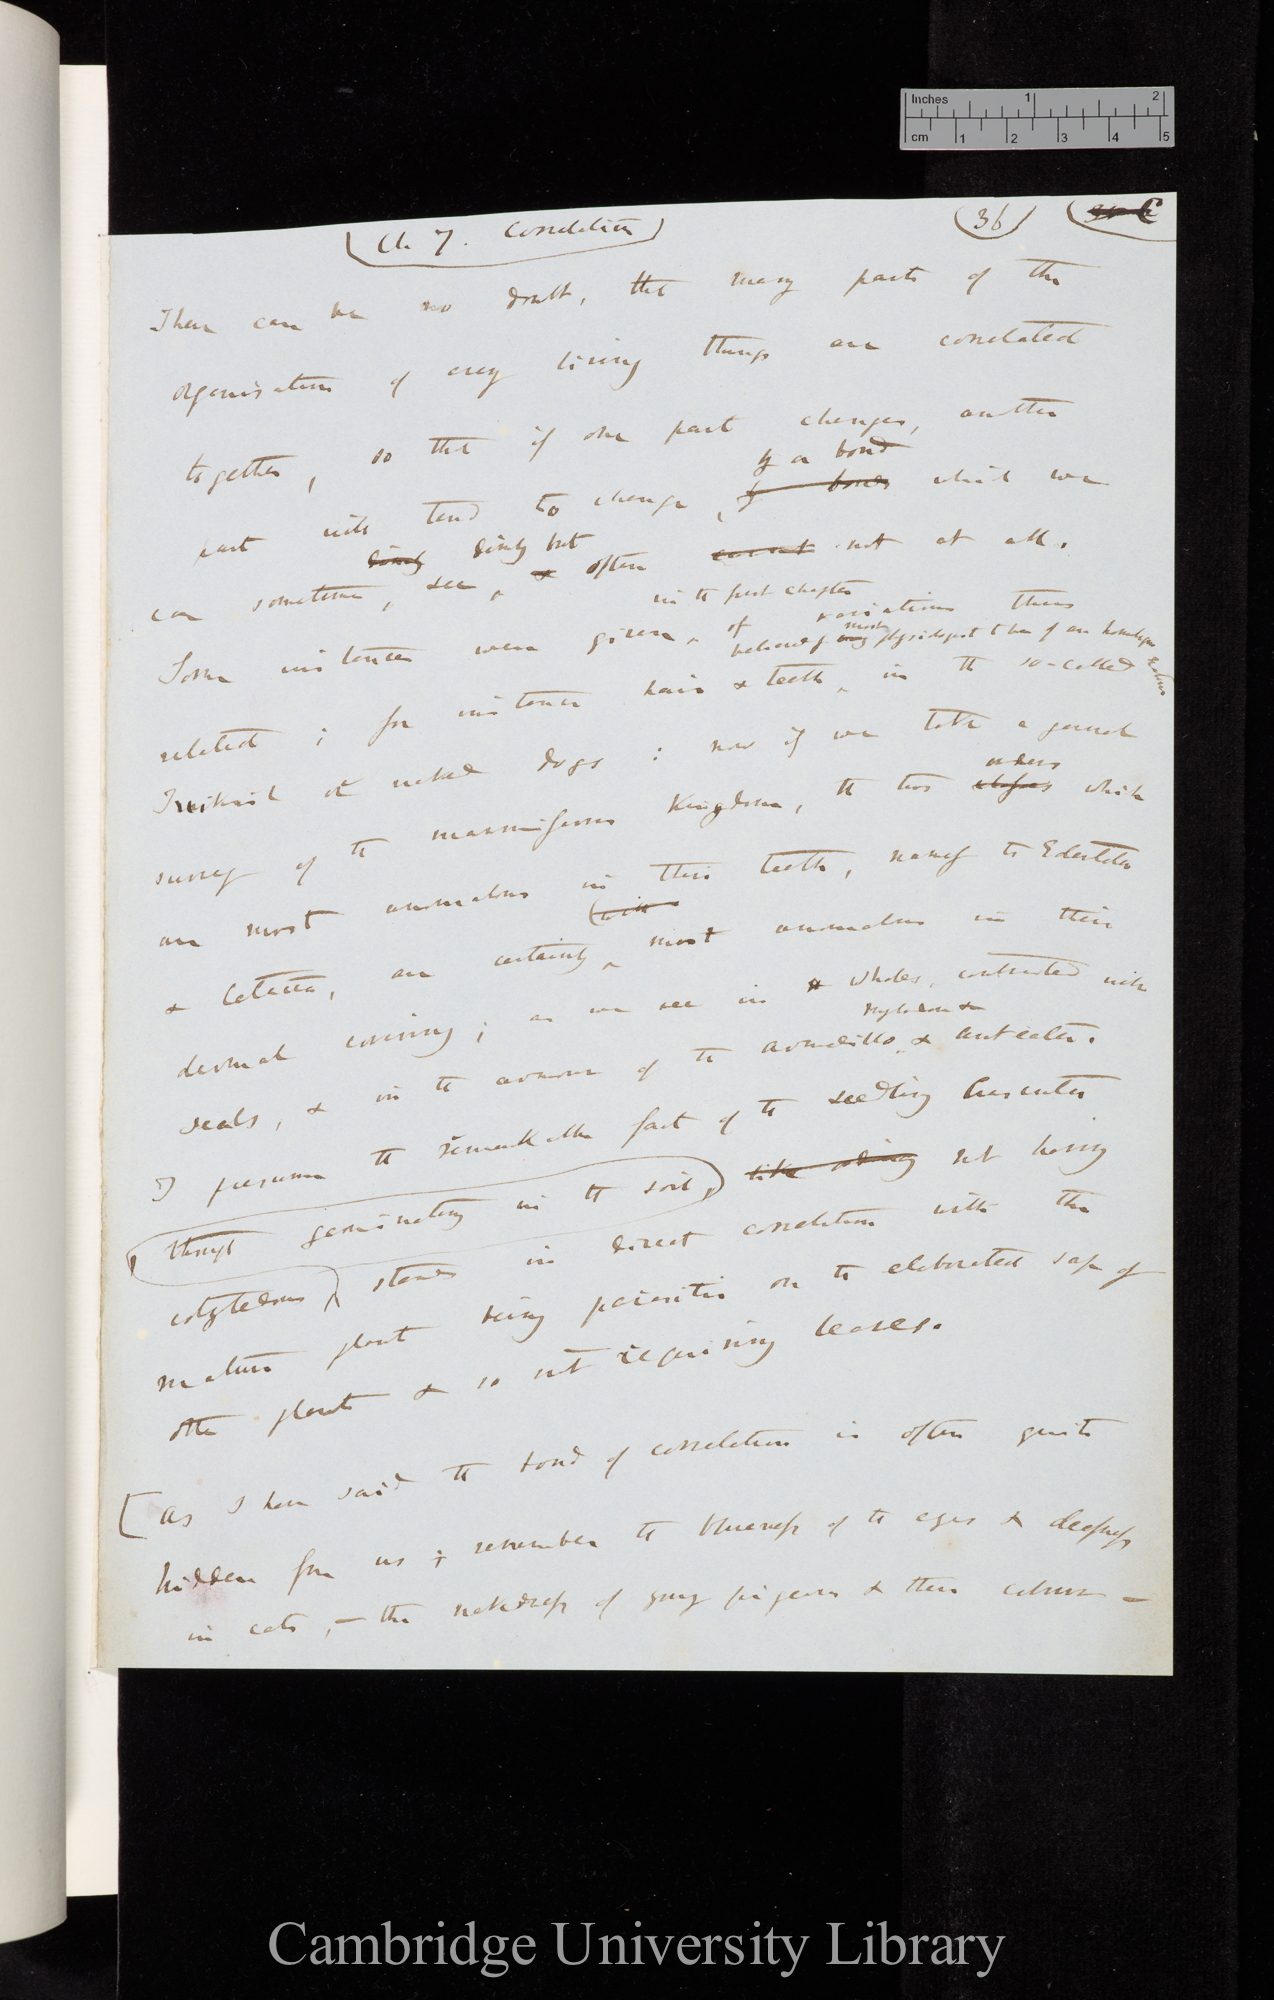 Inches 1 2
cm 1 2 3 4 5
Ch. 7. Correlation
36
There can be no doubt, that many parts of the
organisation of every living things are correlated
together, so that if one part changes, another
by a bond
part will tend to change, by bonds which we
dimly dimly but
can sometimes, see, & often cannot not at all.
in the first chapter
Some instances were given, of variations thus
believed by most many physiologists to be of an homologous nature
related; for instance hair & teeth, in the so-called
Turkish or naked dogs: now if we take a general
orders
survey of the mammiferous Kingdom, the two classes which
are most anomalous in their teeth, namely the Edentata
& Cetacea, are certainly most anomalous in their
dermal covering; as we see in whales, contrasted with
seals, & in the armour of the armadillo, & ant eater.
I presume the remarkable fact of the seedling
though germinating in the soil, like ordinary not having
cotyledons, stands in direct correlation with the
mature plant being parasitic on the elaborated sap of
other plants & so not requiring leaves.
As I have said the bond of correlation is often quite
hidden from us; remember the blueness of the eyes & deafness
in cats,—the nakedness of young pigeons & their colour—
Cambridge University Library